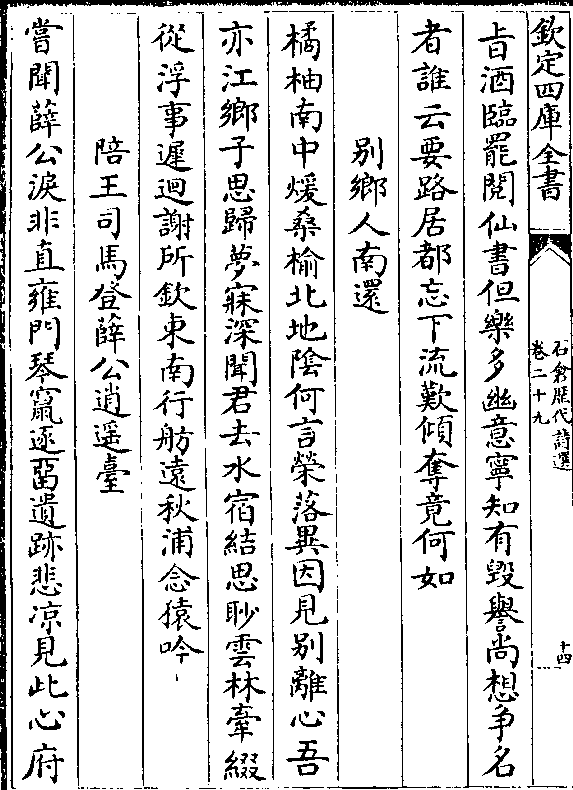 欽定四庫全書
石倉歷代詩選
卷二十九
十四
旨酒臨罷閱仙書但樂多幽意寧知有毀譽尚想爭名
者誰云要路居都忘下流歎傾奪竟何如
別鄉人南還
橘柚南中煖桑榆北地陰何言榮落異因見別離心吾
亦江鄉子思歸夢寐深聞君去水宿結思眇雲林牽綴
從浮事遲迴謝所欽東南行舫遠秋浦念猿吟
陪王司馬登薛公逍遥臺
嘗聞薛公淚非直雍門琴竄逐留遺跡悲凉見此心府